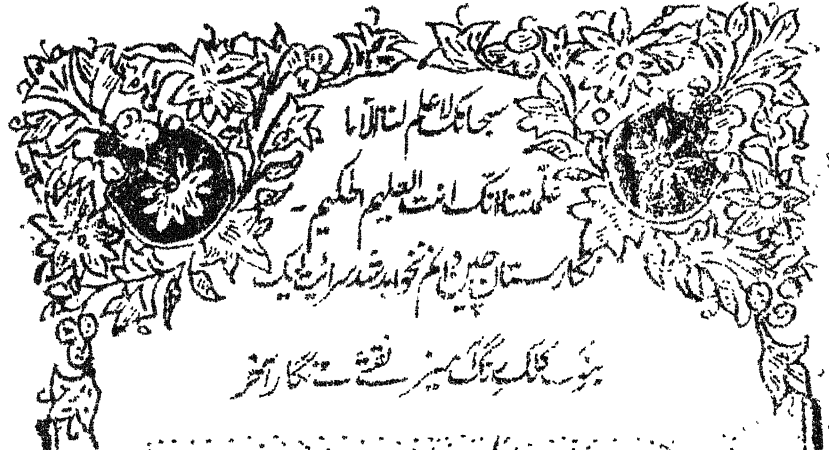 سبحانک لا علم لنا الا ما
علمتنا انک انت العلیم الحکیم
نگارستان چین دانم نخواهد شد سرایت لیک
بنوک کلک رنگ آمیز نقشے نگار آخر